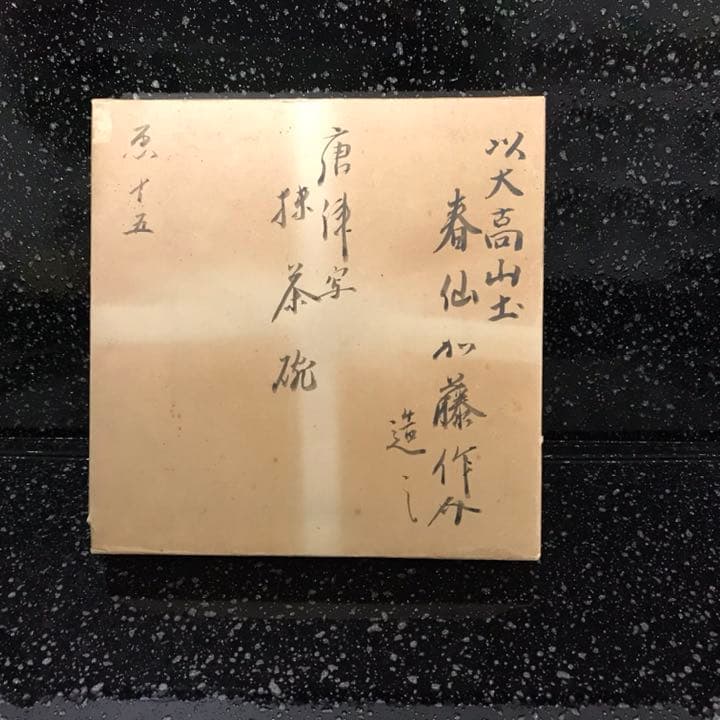 以大高山土
春仙加藤作介
造之
唐津写
抹茶碗
十五